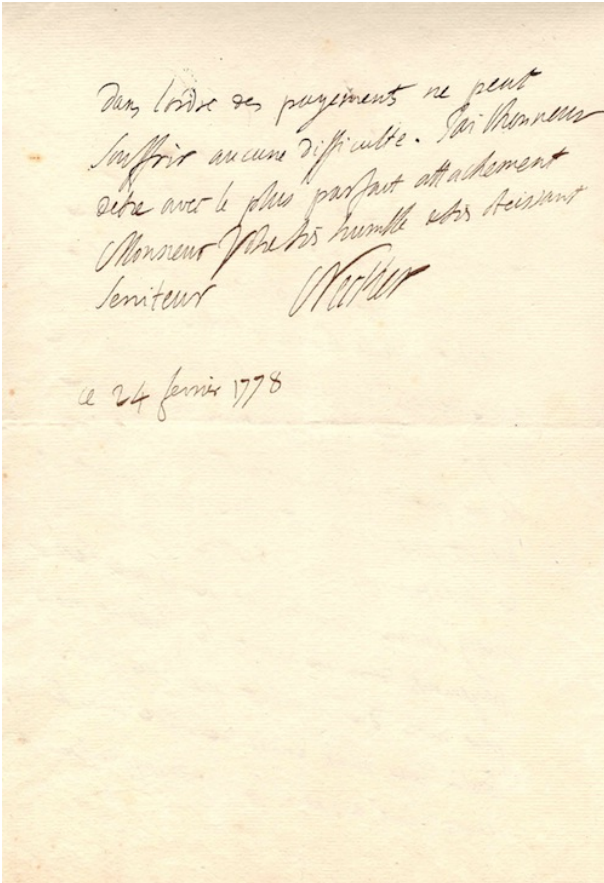 Dans lordre des payements ne peut
souffrir aucune difficulté. Jai lhonneur
detre avec le plus parfait attachement
Monsieur Votre tres humble et tres obeissant
serviteur Necker
ce 24 fevrier 1778